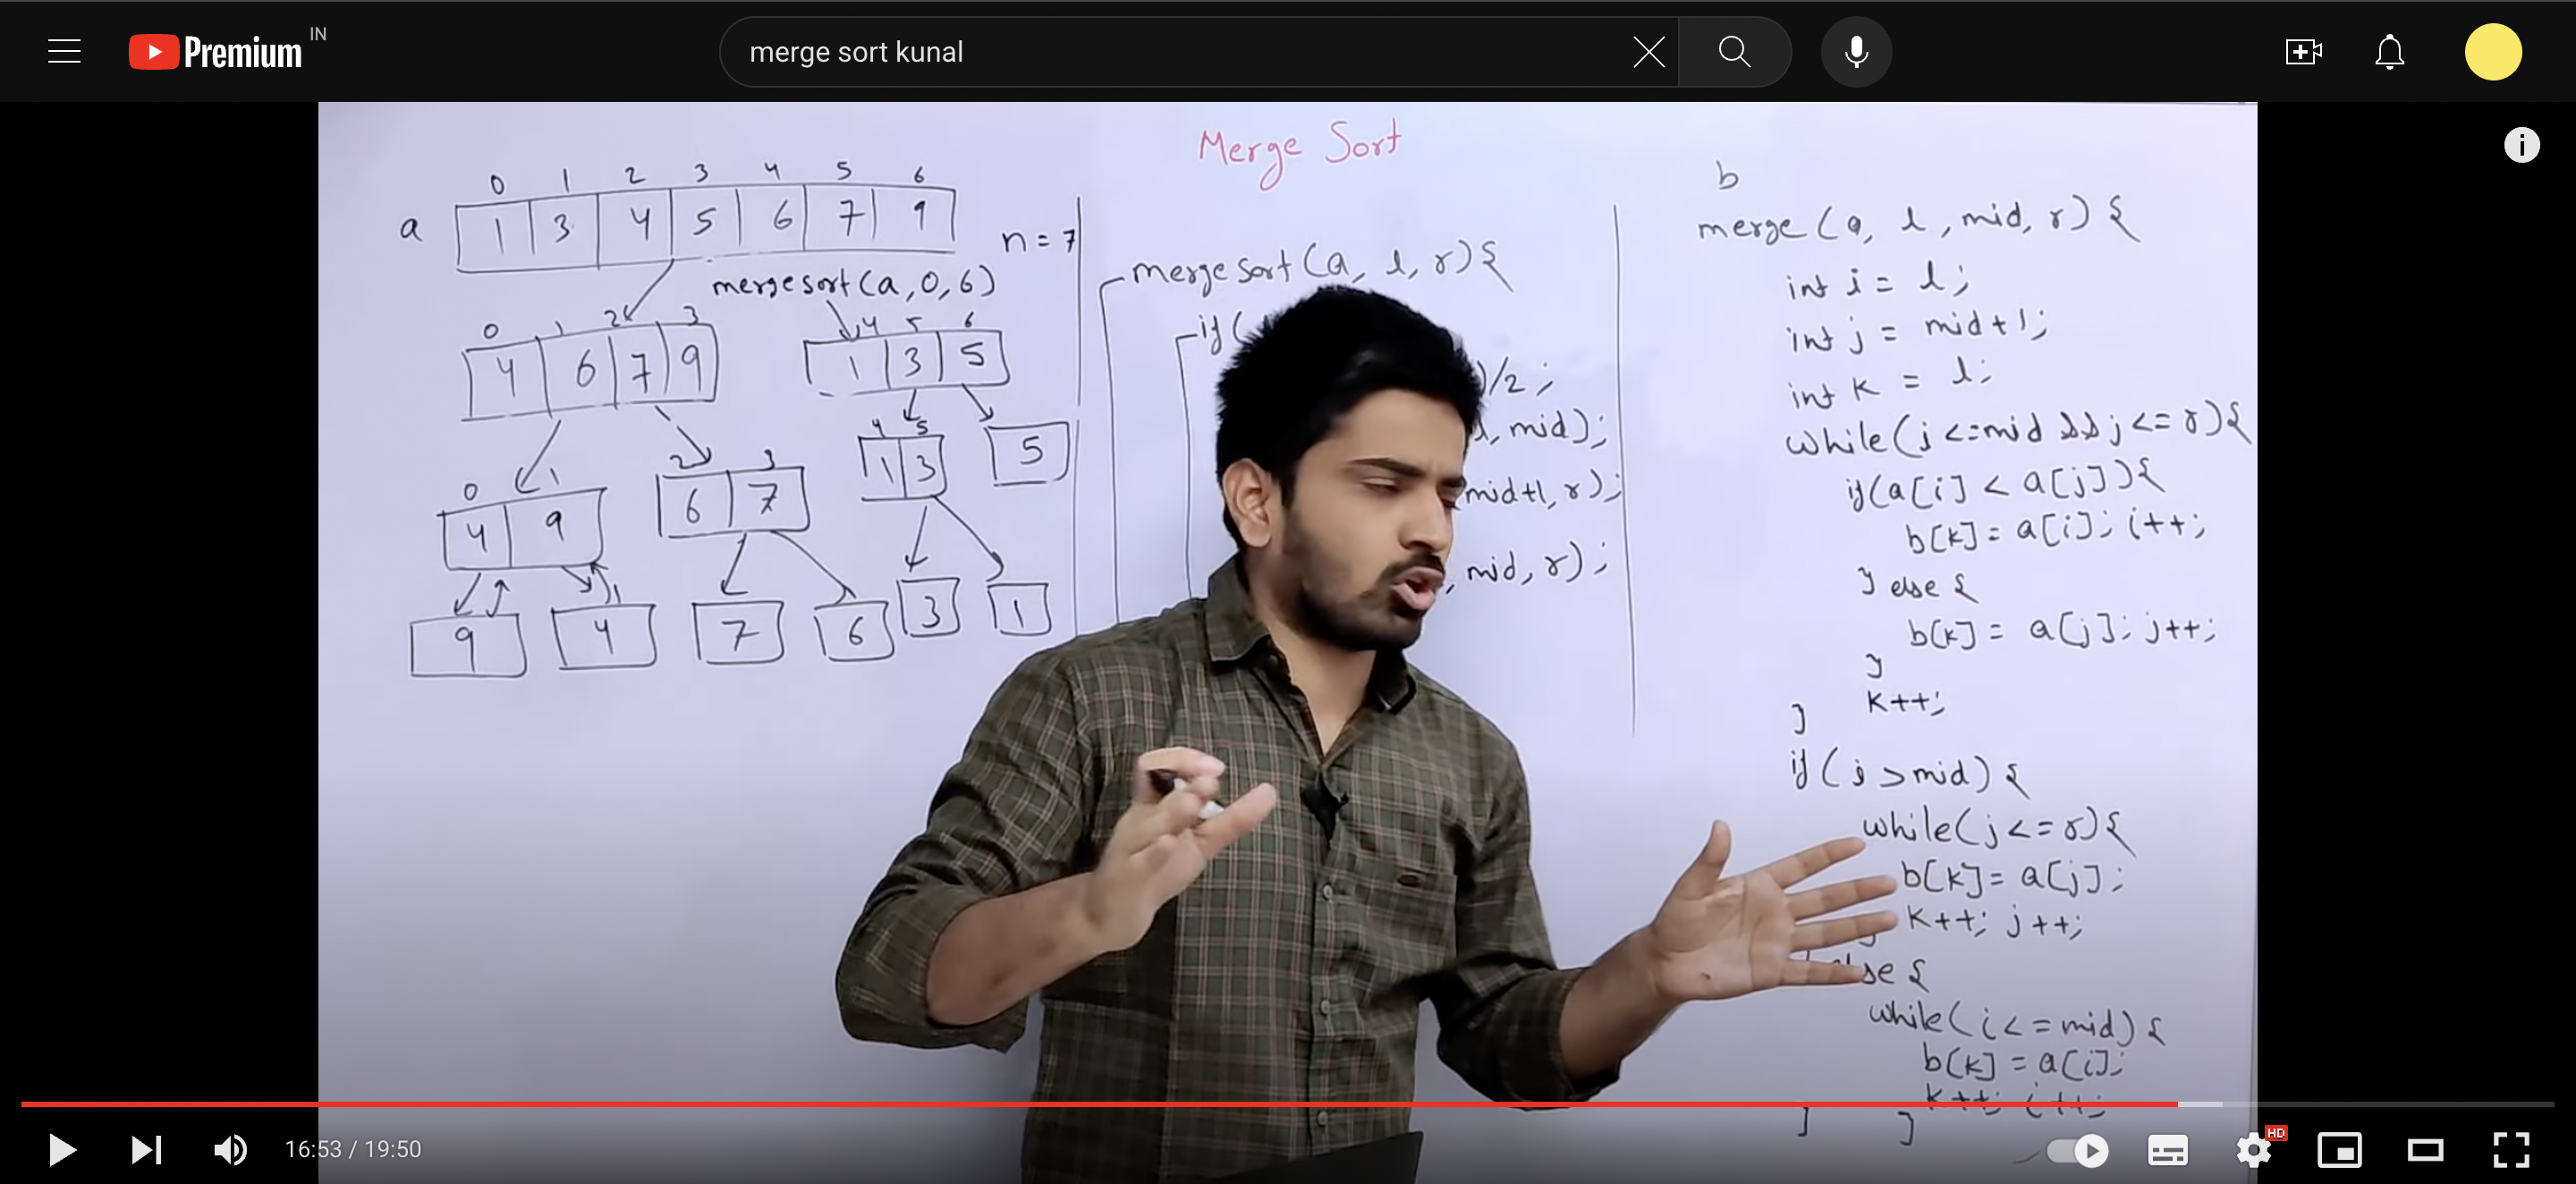 Premium IN
merge sort kunal
Merge Sort
0 1 2 3 4 5 6
a 1 3 4 5 6 7 9
n = 7
mergesort(a,0,6)
0 1 2 3
4 6 7 9
4 5 6
1 3 5
0 1
4 9
2 3
6 7
4 5
1 3
5
9
4
7
6
3
1
mergesort(a, l, r){
if(
)/2;
l, mid);
mid+1, r);
, mid, r);
b
merge(a, l, mid, r){
int i = l;
int j = mid+1;
int k = l;
while(i<=mid && j<=r){
if(a[i] < a[j]){
b[k] = a[i]; i++;
} else {
b[k] = a[j]; j++;
}
k++;
}
if(i>mid){
while(j<=r){
b[k]= a[j];
k++; j++;
}
else {
while(i<=mid){
b[k] = a[i];
k++; i++;
}
}
16:53 / 19:50
HD